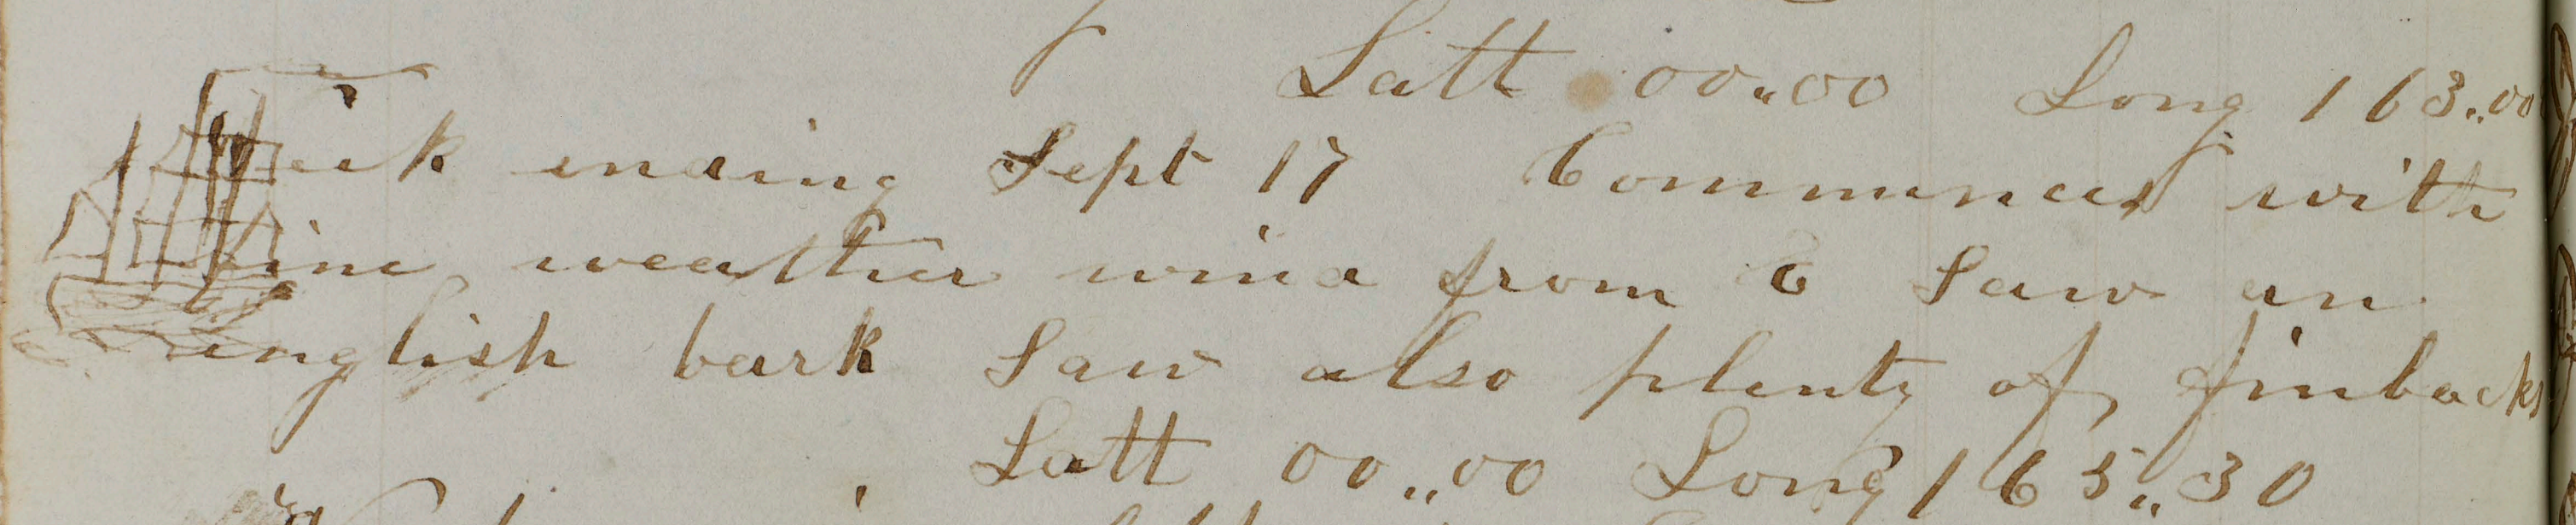 Latt 00"00 Long 163"00
Week ending Sept 17 Commences with
fine weather wind from E Saw an
english bark Saw also plenty of finbacks
Latt 00"00 Long 165"30